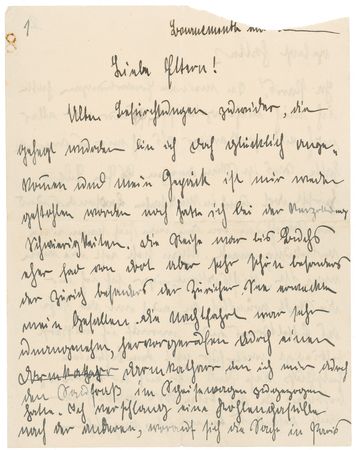 1
8
Bournemouth
Liebe Eltern!
Allen Befürchtungen zuwider, die
gehegt wurden bin ich doch glücklich ange-
kommen und mein Gepäck ist mir weder
gestohlen worden noch hatte ich bei der Verzollung
Schwierigkeiten. Die Reise war bis Buchs
eher fad von dort aber sehr schön besonders
der Zürich besonders der Züricher See erweckten
mein Gefallen. Die Nachtfahrt war sehr
unangenehm, hervorgerufen durch einen
Darmkatarrh den ich mir durch
den Saufraß im Speisewagen zugezogen
hatte. Ich verschlang eine
nach der anderen, worauf sich die Sache in Paris